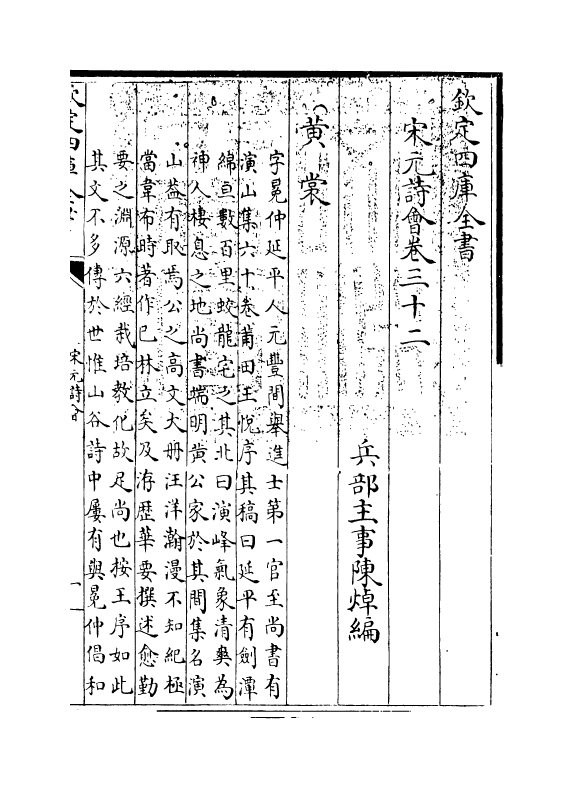 欽定四庫全書
宋元詩會卷三十二
兵部主事陳焯編
黃裳
字冕仲延平人元豐間舉進士第一官至尚書有
演山集六十卷莆田王悅序其稿曰延平有劍潭
綿亘數百里蛟龍宅之其北曰演峰氣象清爽為
神人棲息之地尚書端明黃公家於其間集名演
山葢有取焉公之高文大冊汪洋瀚漫不知紀極
當韋布時著作已林立矣及洊歴華要撰述愈勤
要之淵源六經栽培教化故足尚也按王序如此
其文不多傳於世惟山谷詩中屢有與冕仲倡和
欽定四庫全書
宋元詩會
一